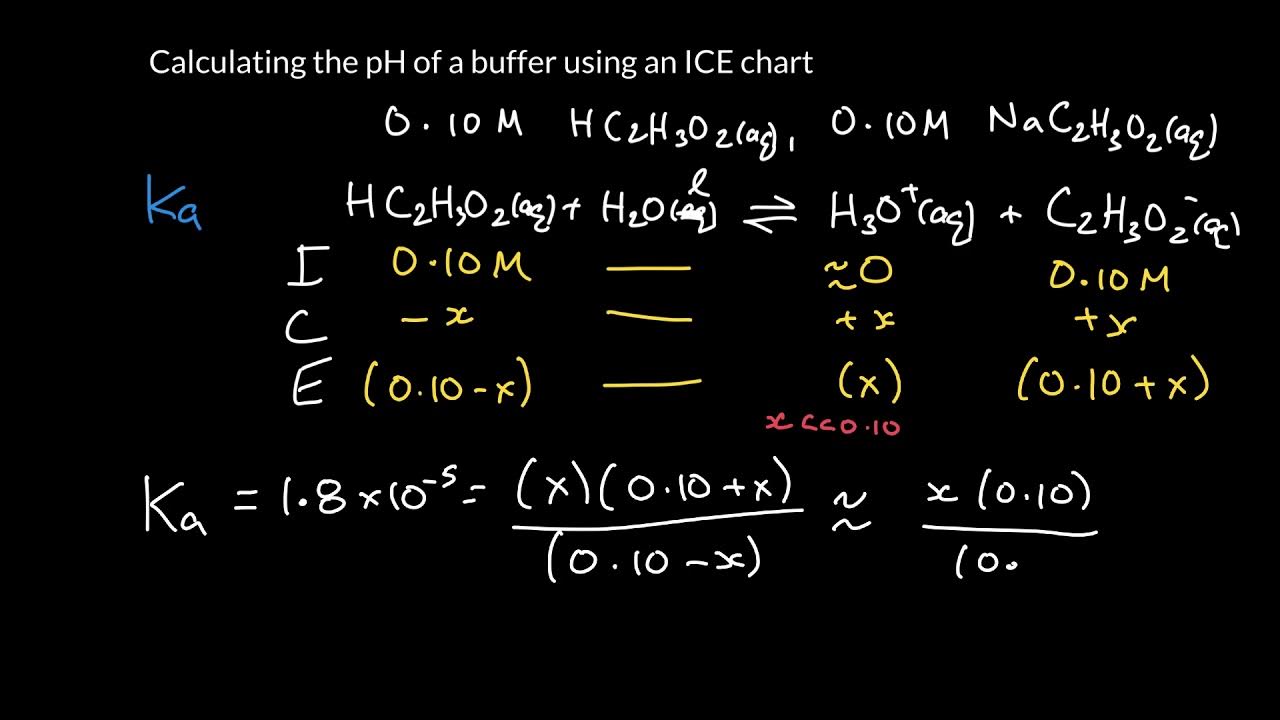 Calculating the pH of a buffer using an ICE chart
0.10 M HC₂H₃O₂(aq), 0.10M NaC₂H₃O₂(aq)
Ka HC₂H₃O₂(aq) + H₂O(l) ⇌ H₃O⁺(aq) + C₂H₃O₂⁻(aq)
I 0.10 M — ≈0 0.10 M
C - x — + x + x
E (0.10 - x) — (x) (0.10 + x)
x << 0.10
Ka = 1.8 × 10⁻⁵ = (x)(0.10 + x) / (0.10 - x) ≈ x (0.10) / (0.